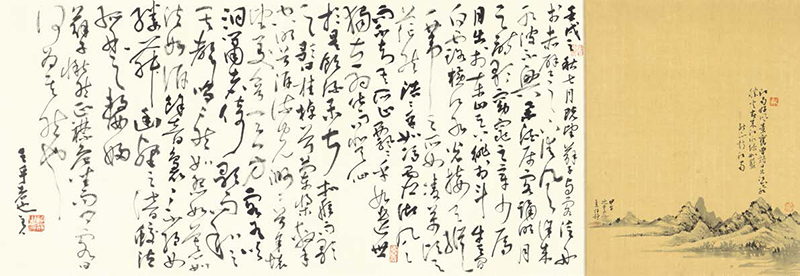 壬戌之秋七月既望蘇子與客泛舟遊
於赤壁之下清風徐來
水波不興舉酒屬客誦明月
之詩歌窈窕之章少焉
月出於東山之上徘徊於斗牛之間
白露橫江水光接天縱
一葦之所如凌萬頃之
茫然浩浩乎如馮虛御風
而不知其所止飄飄乎如遺世
獨立羽化而登仙
於是飲酒樂甚扣舷而歌
之歌曰桂棹兮蘭槳擊
空明兮溯流光渺渺兮予懷
望美人兮天一方客有吹
洞簫者倚歌而和之
其聲嗚嗚然如怨如慕如
泣如訴餘音嫋嫋不絕如
縷舞幽壑之潛蛟泣
孤舟之嫠婦
蘇子愀然正襟危坐而問客曰
何為其然也
江南好風景舊曾諳日出江花紅
勝火春來江水綠如藍
能不憶江南